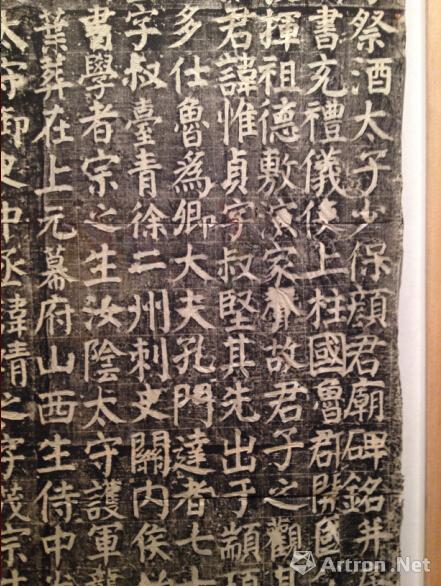 祭酒太子少保顏君廟碑銘并
書充禮儀使上柱國魯郡開國
揮祖德敷演家聲故君子之觀
君諱惟貞字叔堅其先出于顓
多仕魯為卿大夫孔門達者七
字叔臺青徐二州刺史關内侯
書學者宗之生汝陰太守護軍
葉葬在上元幕府山西生侍中
太守御史中丞諱靖之字茂宗
Artron.Net